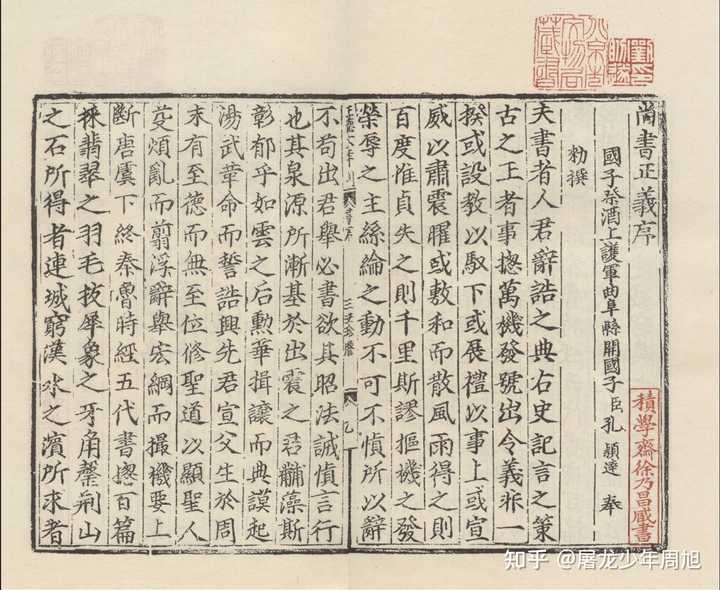 尚書正義序
國子祭酒上護軍曲阜縣開國子臣孔穎達奉
勑撰
夫書者人君辭誥之典右史記言之策
古之王者事揔萬機發號出令義非一
揆或設教以馭下或展禮以事上或宣
威以肅震曜或敷和而散風雨得之則
百度惟貞失之則千里斯謬樞機之發
榮辱之主絲綸之動不可不慎所以辭
不苟出君舉必書欲其昭法誡慎言行
也其泉源所漸基於出震之君黼藻斯
彰郁乎如雲之后勳華揖讓而典謨起
湯武革命而誓誥興先君宣父生於周
末有至德而無至位修聖道以顯聖人
芟煩亂而翦浮辭舉宏綱而撮機要上
斷唐虞下終秦魯時經五代書揔百篇
採翡翠之羽毛拔犀象之牙角罄荊山
之石所得者連城窮漢水之濱所求者
積學齋徐乃昌藏書
知乎 @屠龙少年周旭